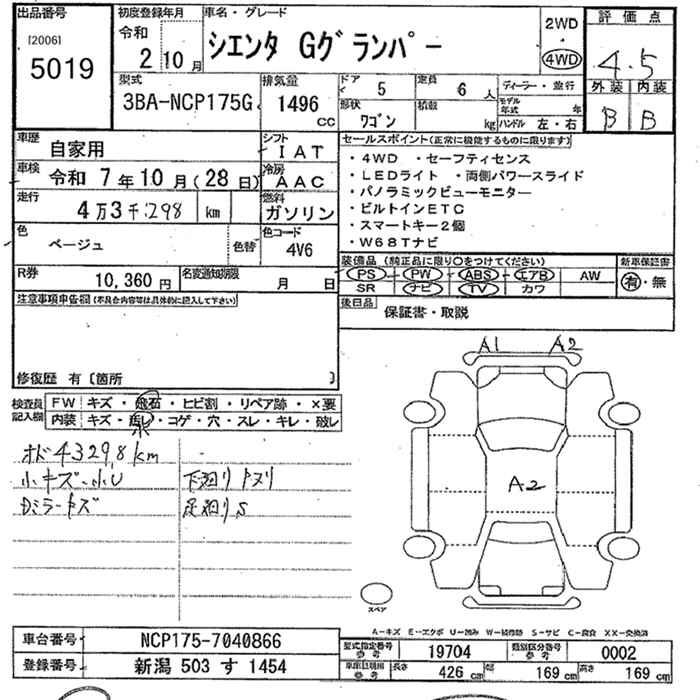 出品番号
[2006]
5019
初度登録年月
令和
2 10月
車名・グレード
シエンタ Gグランパー
2WD
4WD
評価点
4.5
外装 内装
B B
型式
3BA-NCP175G
排気量
1496
cc
ドア
5
定員
6 人
形状
ワゴン
積載
kg
ディーラー・並行
モデル年式 年
ハンドル 左・右
車歴
自家用
シフト
IAT
車検
令和 7年10月(28日)
冷房
AAC
走行
4万3千298 km
燃料
ガソリン
色
ベージュ
色替
色コード
4V6
R券
10,360円
名変通知期限
月 日
セールスポイント(正常に機能するものに限ります)
・4WD ・セーフティセンス
・LEDライト ・両側パワースライド
・パノラミックビューモニター
・ビルトインETC
・スマートキー2個
・W68Tナビ
装備品 (純正品に限り○をつけてください)
新車保証書
PS PW ABS エアB AW
SR ナビ TV カワ
有・無
後日品
保証書・取説
注意事項申告欄(不具合内容等は具体的に記入して下さい)
修復歴 有〔箇所 〕
検査員記入欄
FW キズ・飛石・ヒビ割・リペア跡・×要
内装 キズ・汚レ・コゲ・穴・スレ・キレ・破レ
オド43298km
小キズ・小U
下廻りトヌリ
ミラーキズ
足廻りS
A1 A2
A2
スペア
A-キズ E-エクボ U-凹み W-補修跡 S-サビ C-腐食 XX-交換済
車台番号
NCP175-7040866
登録番号
新潟 503 す 1454
型式指定番号
参考
19704
類別区分番号
参考
0002
車庫証明用
参考
長さ 426 cm 幅 169 cm 高さ 169 cm